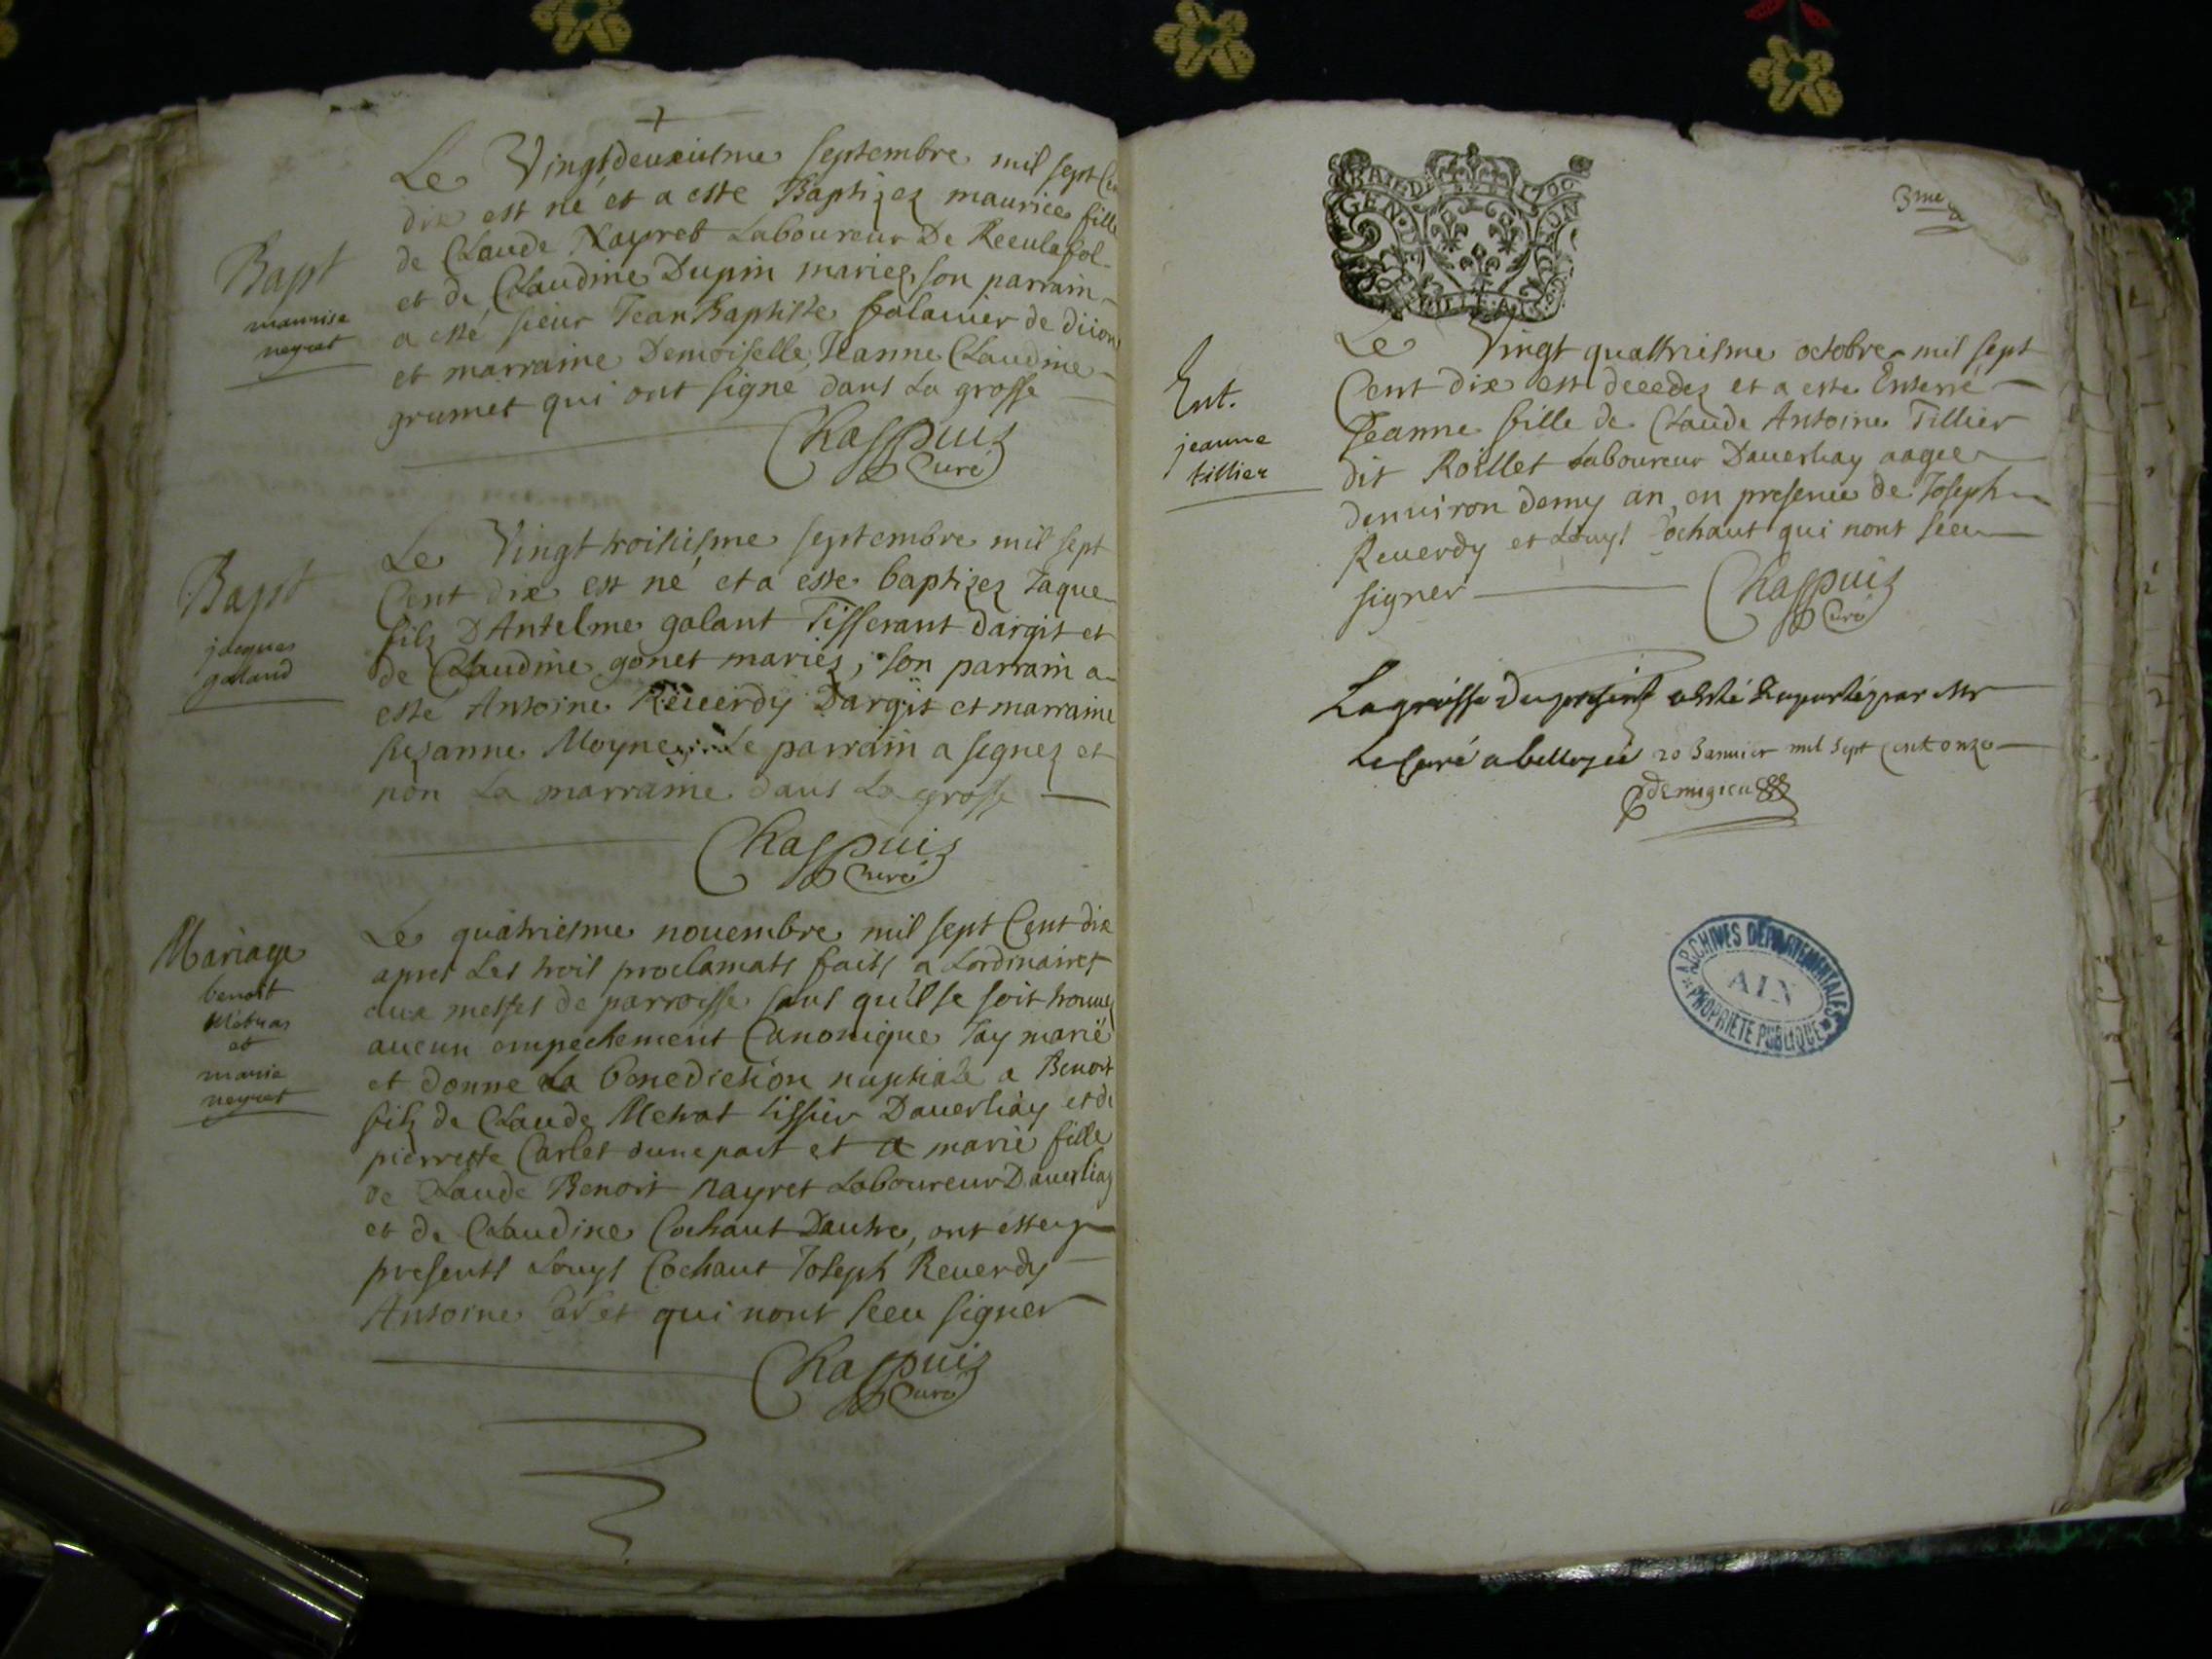 Le Vingtdeuxiesme septembre mil sept Cen
dix est né et a este Baptizez maurice fille
de Claude Nayret Laboureur De Reculafol
et de Claudine Dupin mariez, son parrain
a esté sieur Jean Baptiste de diion
et marraine Demoiselle Jeanne Claudine
grumet qui ont signé dans La grosse
Chappuis
Curé
Bapt
maurise
neyret
Le Vingt troisiesme septembre mil sept
Cent dix est né et a este baptizez Jaque
filz D'Antelme galant Tisserant dargit et
de Claudine gonet mariez, son parrain a
este Antoine Reverdy Dargit et marraine
susanne Moyne Le parrain a signez et
non La marraine dans La grosse
Chappuis
Curé
Bapt
jacques
galland
Le quatriesme nouembre mil sept Cent dix
apres Les trois proclamats faits a Lordinaires
aux messes de parroisse sans qu'il se soit trouuez
aucun empechement Canonique Jay marié
et donne La benediction nuptiale a Benoit
filz de Claude Metrat tissier Dauerliay et de
pierrette Carlet dune part et a marie fille
de Claude Benoit nayret Laboureur Dauerliay
et de Claudine Cochaut Dautre, ont esté
presents Louys Cochaut Joseph Reuerdy
Antoine qui nont sceu signer
Chappuis
Curé
Mariage
benoit
Metras
et
marie
neyret
GEN. DE 1700
3me
Le Vingt quattriesme octobre mil sept
Cent dix est decedez et a este Enterré
Jeanne fille de Claude Antoine Tillier
dit Roillet Laboureur Dauerliay aagee
denuiron demy an en presence de Joseph
Reuerdy et Louys Cochaut qui nont sceu
signer
Chappuis
Curé
Ent.
jeanne
tillier
La grosse du present a esté Raportée par Mr
Le Curé a belley le 20 Januier mil sept cent onze
demigieu
ARCHIVES DÉPARTEMENTALES
AIN
PROPRIÉTÉ PUBLIQUE